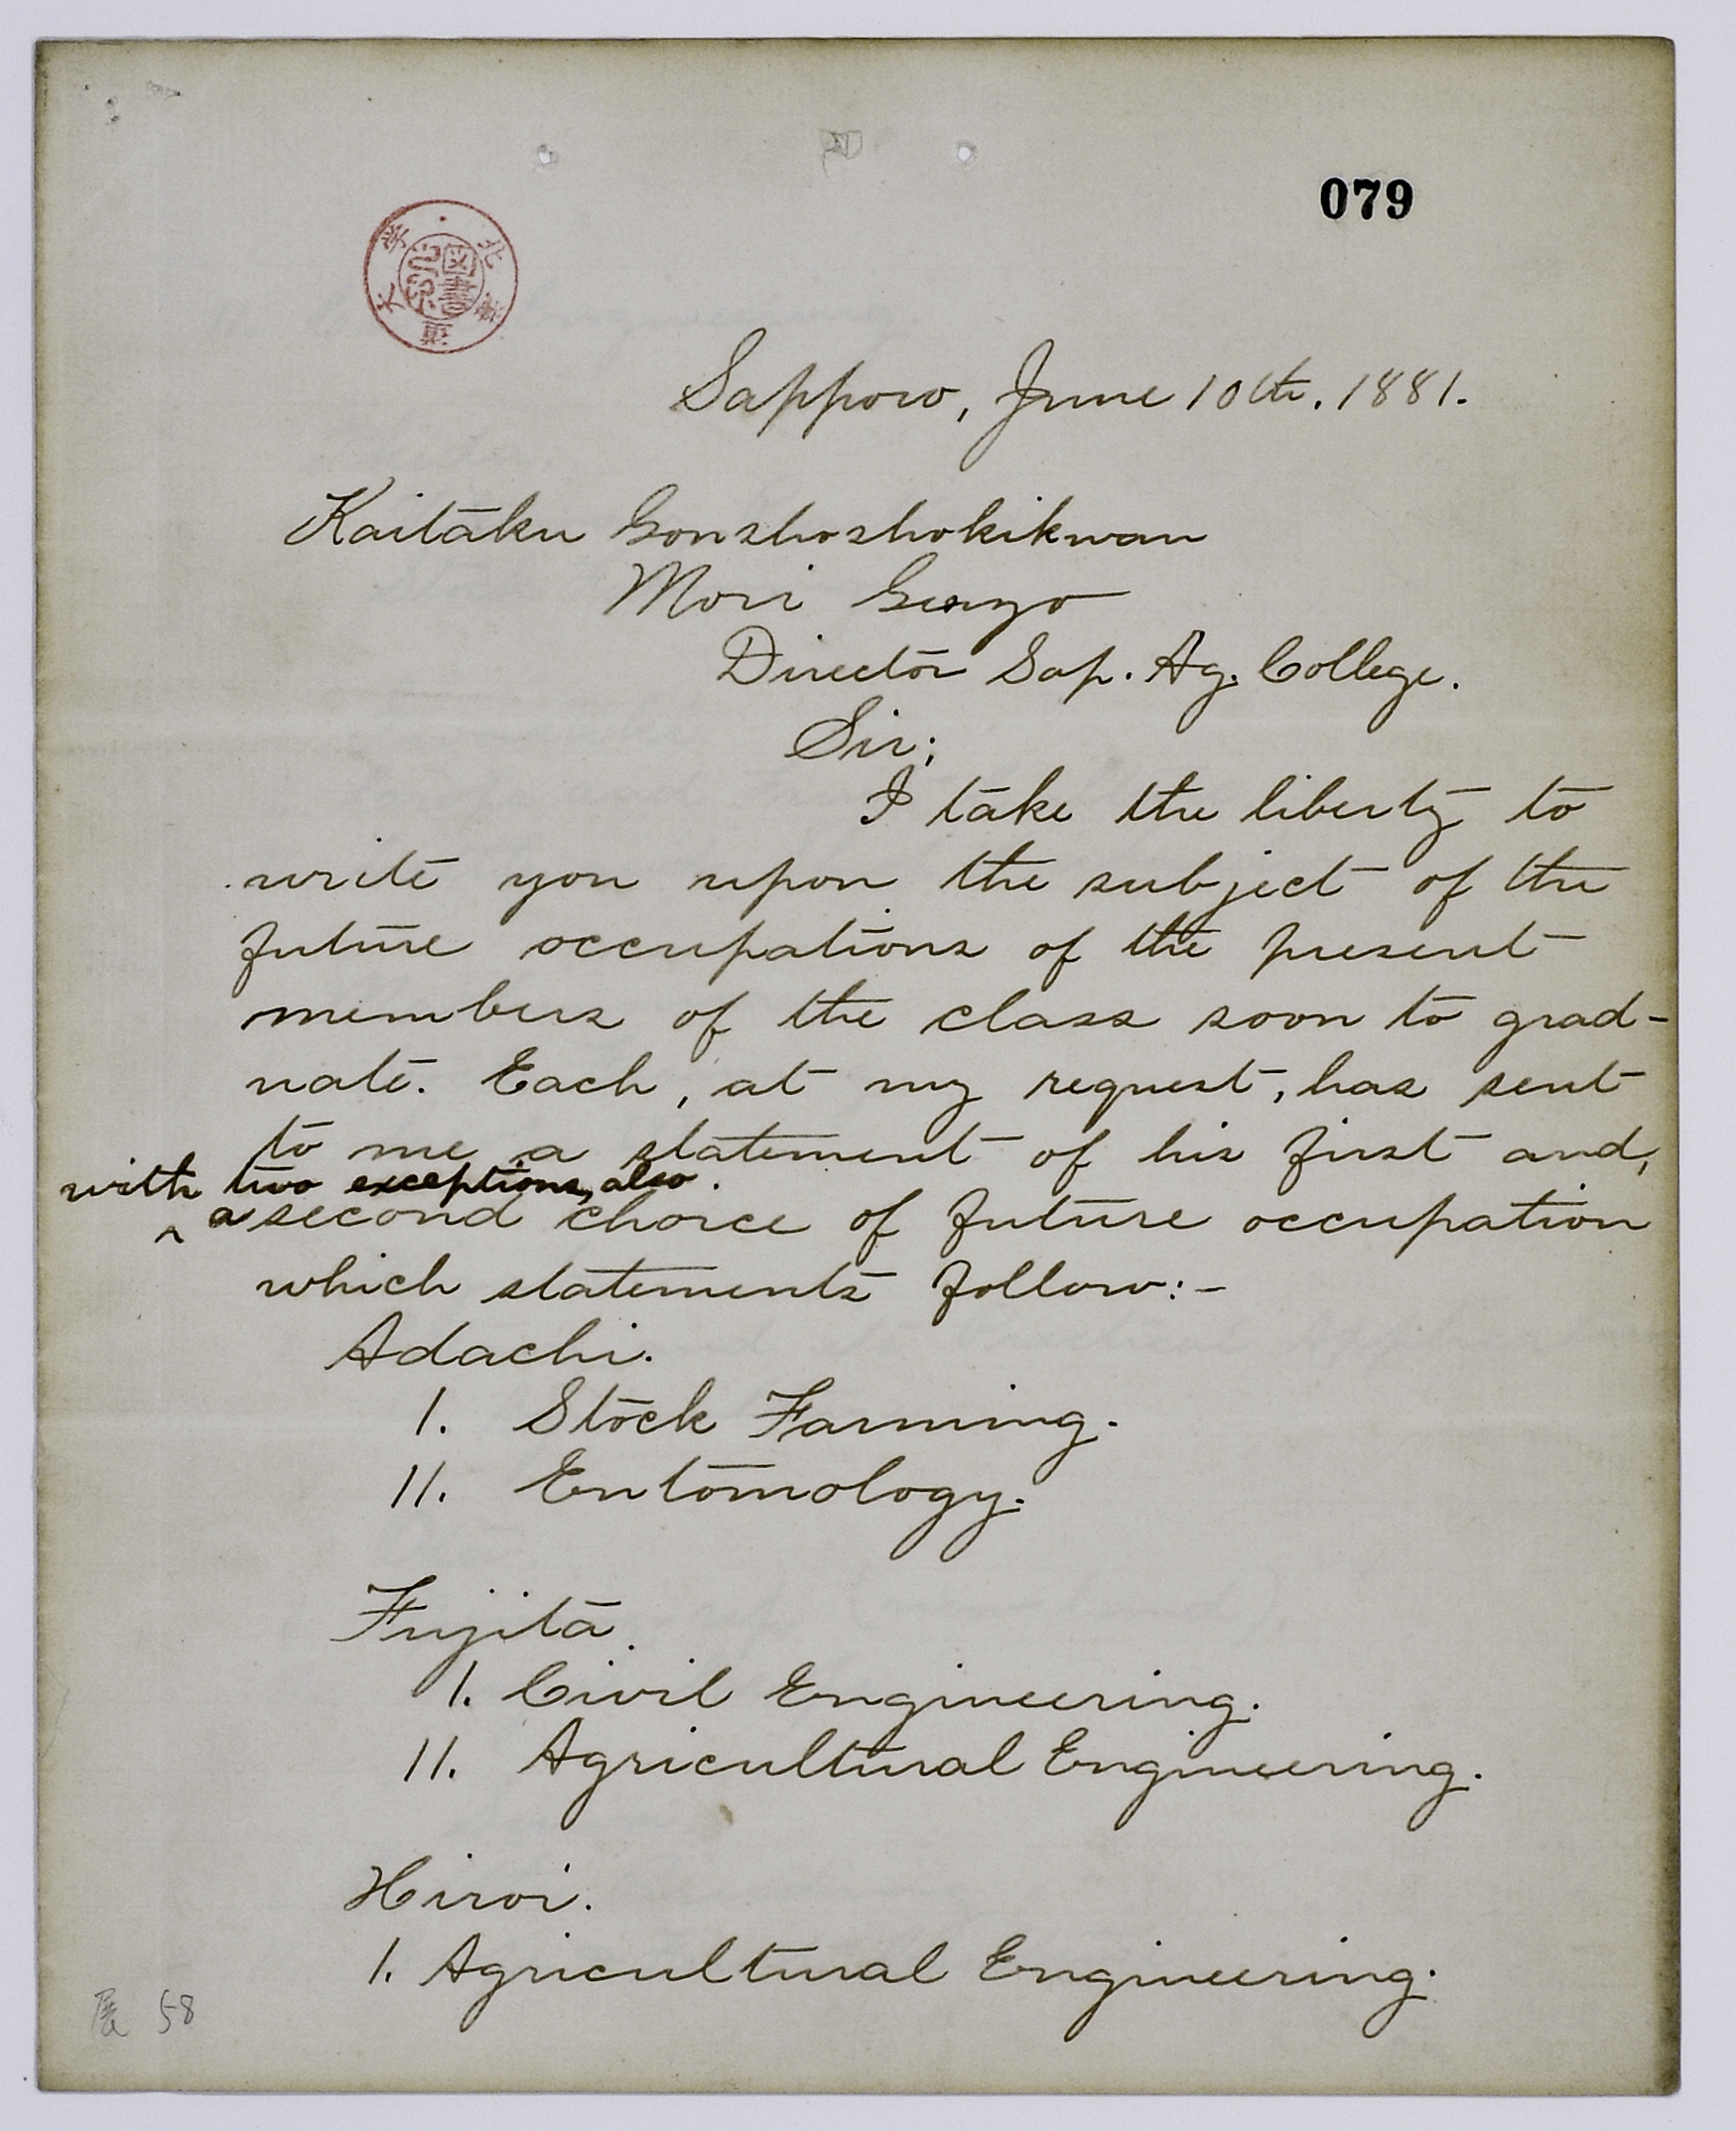 079
北海道大学
図書之印
Sapporo, June 10th. 1881.
Kaitaku Gonshoshokikwan
Mori Genzo
Director Sap. Ag. College.
Sir;
I take the liberty to
write you upon the subject of the
future occupations of the present
members of the class soon to grad-
uate. Each, at my request, has sent
to me a statement of his first and,
with two exceptions, also
^ a second choice of future occupation
which statements follow:-
Adachi.
I. Stock Farming.
II. Entomology.
Fujita.
I. Civil Engineering.
II. Agricultural Engineering.
Hiroi.
I. Agricultural Engineering.
展 58